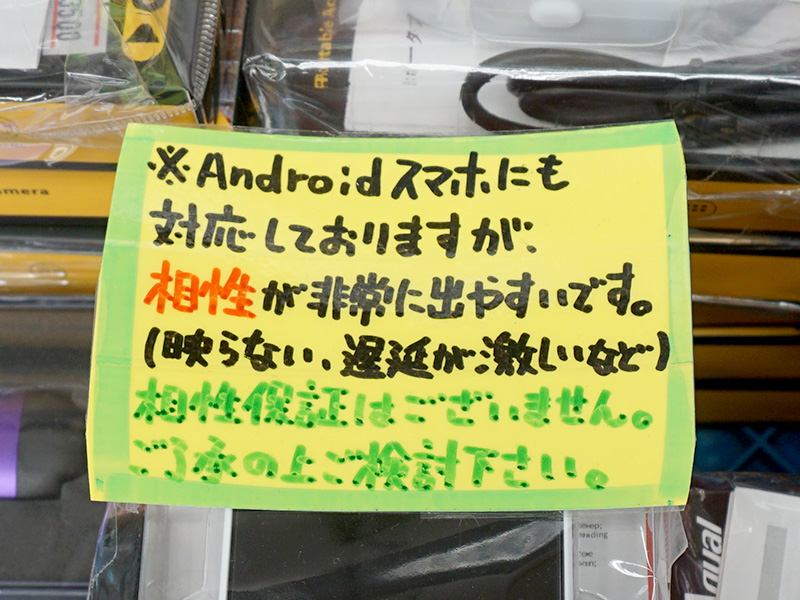 ※Androidスマホにも
対応しておりますが、
相性が非常に出やすいです。
(映らない、遅延が激しいなど)
相性保証はございません。
ご了承の上ご検討下さい。
camera